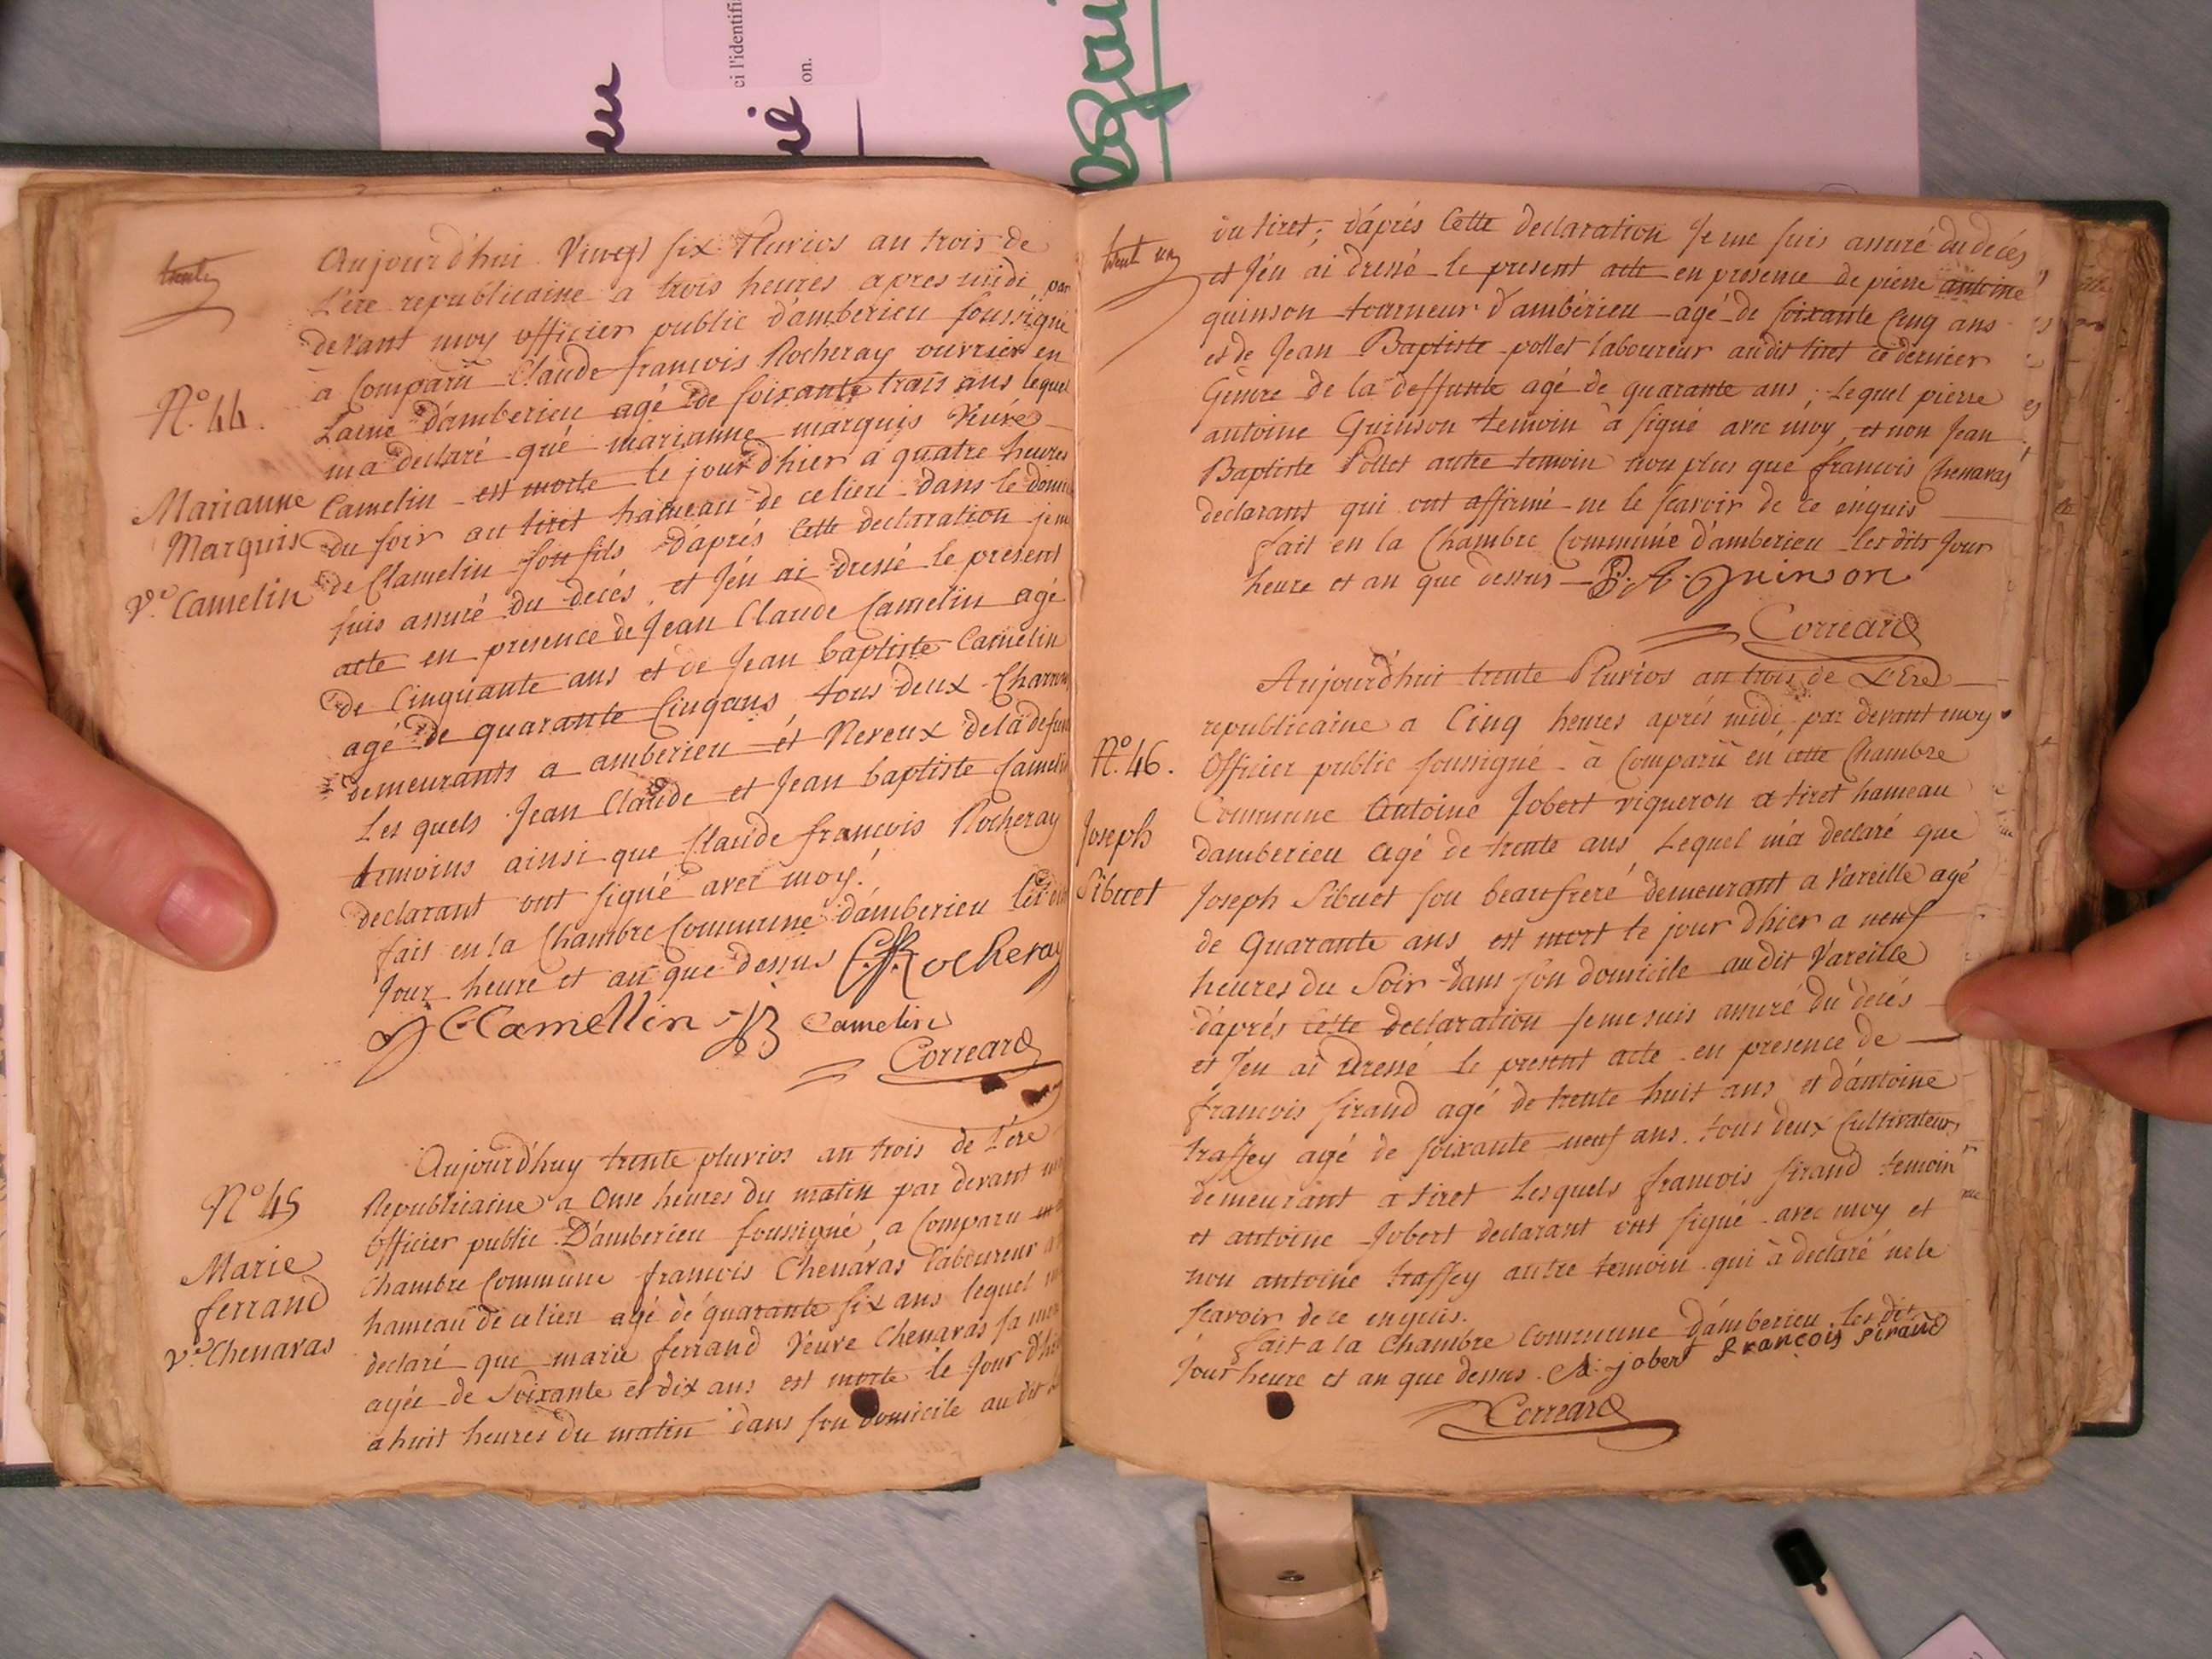 ci l'identifi
on.
trente
Aujourd'hui Vingt six Pluvios an trois de
L'ère republicaine a trois heures apres midi par
devant moy officier public d'amberieu soussigné
a Comparu Claude francois Rocheray ouvrier en
Laine d'amberieu agé de soixante trois ans lequel
m'a declaré que marianne marquis Veuve
Camelin est morte le jour d'hier a quatre heures
du soir au tiret hameau de ce lieu dans le
de Clamelin son fils d'aprés Cette declaration je me
suis assuré du decés et J'en ai dressé le present
acte en presence de Jean Claude Camelin agé
de Cinquante ans et de Jean baptiste Camelin
agé de quarante Cinq ans tous deux
demeurants a amberieu et Neveux de la
Les quels Jean Claude et Jean baptiste Camelin
temoins ainsi que Claude francois Rocheray
declarant ont signé avec moy.
fait en la Chambre Commune d'amberieu les
Jour heure et an que dessus C.f.Rocheray
J C Camellin JB Camelin
Correard
N.º 44.
Marianne
Marquis
Vº. Camelin
Aujourd'huy trente pluvios an trois de l'ére
Republicaine a Onse heures du matin par devant
Officier public D'amberieu soussigné, a Comparu
Chambre Commune francois Chenavas laboureur
hameau de ce lieu agé de quarante six ans lequel
declaré que marie ferrand Veuve Chenavas sa
agée de Soixante et dix ans est morte le Jour
a huit heures du matin dans son domicile au dit
Nº 45
Marie
ferrand
Vº. Chenavas
trente un
du tiret; d'aprés Cette declaration Je me suis assuré du decés
et J'en ai dressé le present acte en presence de pierre antoine
quinson tourneur d'ambérieu agé de soixante Cinq ans
et de Jean Baptiste pollet laboureur audit tiret ce dernier
Gendre de la deffunte agé de quarante ans; Lequel pierre
antoine Quinson temoin à signé avec moy, et non Jean
Baptiste Pollet autre temoin non plus que francois Chenavas
declarant qui ont affirmé ne le scavoir de ce enquis
fait en la Chambre Commune d'amberieu les dits Jour
heure et an que dessus P. A. Quinson
Correard
Aujourd'hui trente Pluvios an trois de L'Ere
republicaine a Cinq heures aprés midi, par devant moy
Officier public soussigné à Comparu en cette Chambre
Commune Antoine Jobert vigneron a tiret hameau
damberieu agé de trente ans Lequel m'a declaré que
Joseph Sibuet son beaufrere demeurant a Vareille agé
de Quarante ans est mort le jour d'hier a neuf
heures du Soir dans son domicile audit Vareille
d'aprés Cette declaration Je me suis assuré du decés
et J'en ai Dressé le present acte en presence de
francois sirand agé de trente huit ans et d'antoine
traffey agé de soixante neuf ans tous deux Cultivateurs
demeurant a tiret Lesquels francois sirand temoin
et antoine Jobert declarant ont signé avec moy et
non antoine traffey autre temoin qui à declaré ne le
scavoir de ce enquis.
fait a la Chambre Commune D'amberieu les dits
Jour heure et an que dessus. A. jobert francois sirand
Correard
Nº. 46.
Joseph
Sibuet